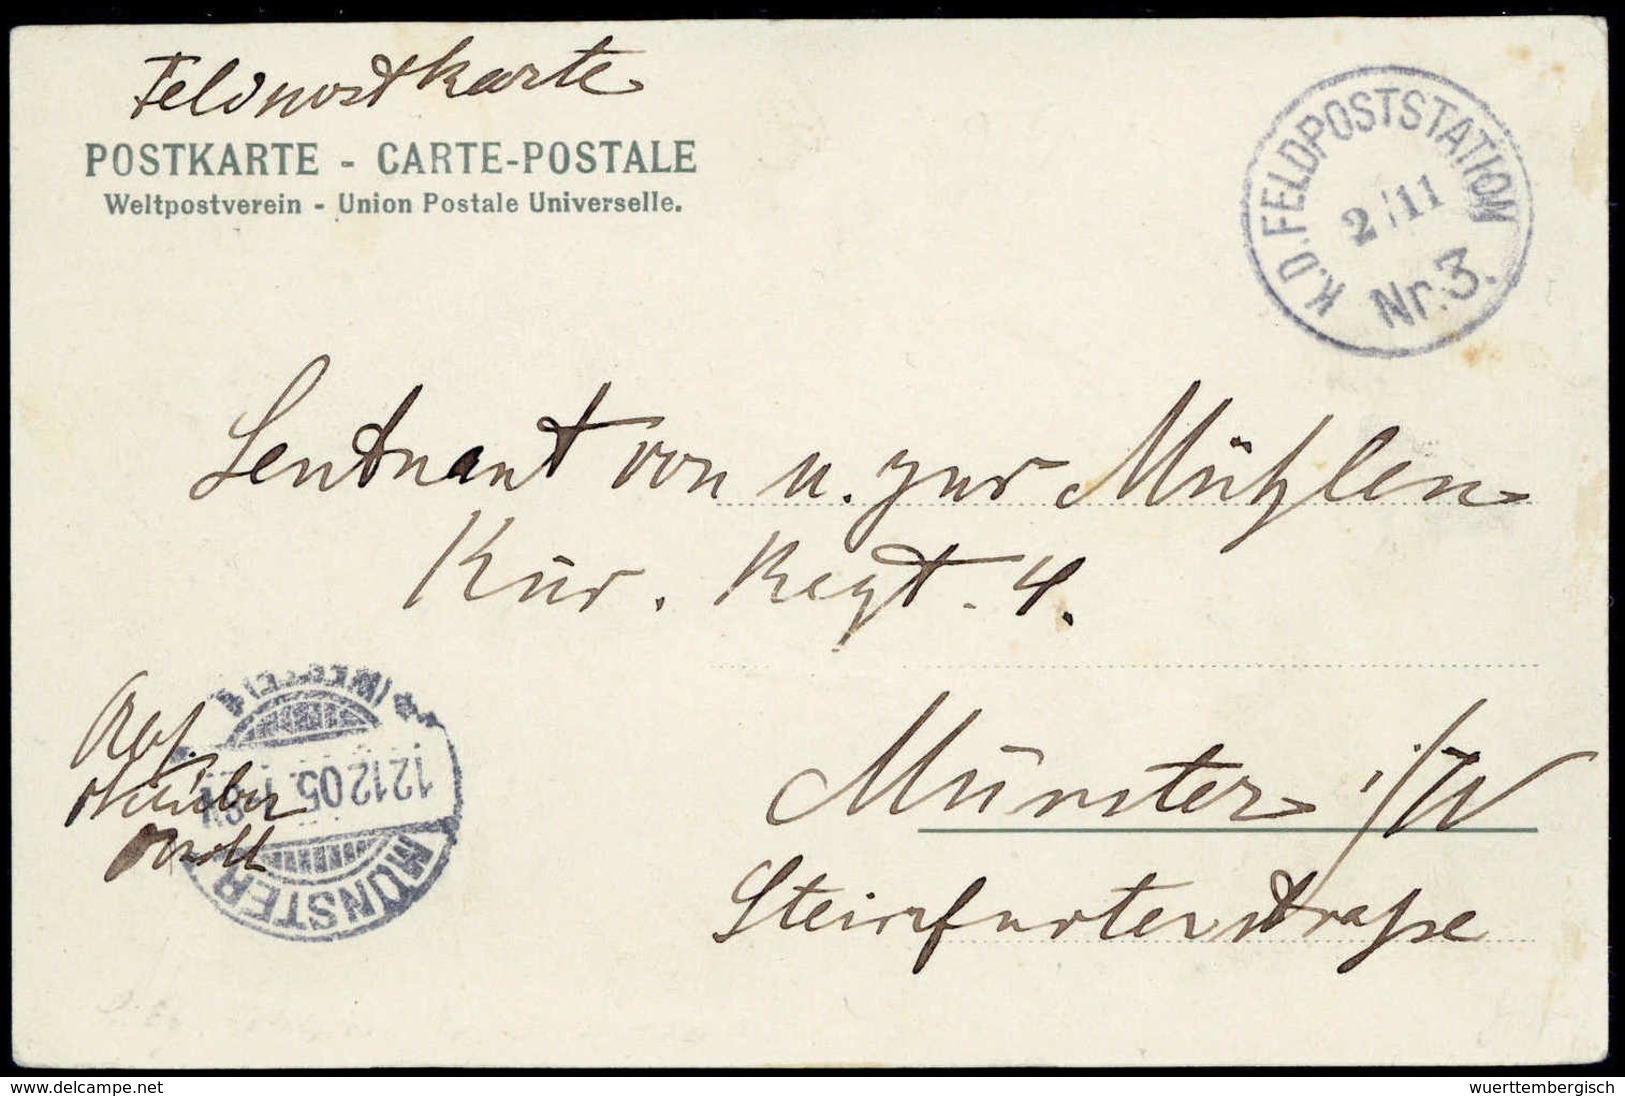 Feldpostkarte
POSTKARTE - CARTE-POSTALE
Weltpostverein - Union Postale Universelle.
K.D.FELDPOSTSTATION
2/11
Nr.3.
Leutnant von u. zur Mühlen
Kür. Regt. 4.
Münster i/W
Steinfurterstraße
Abs.
(WESTF.)
12.12.05.
MÜNSTER
www.delcampe.net
wuerttembergisch